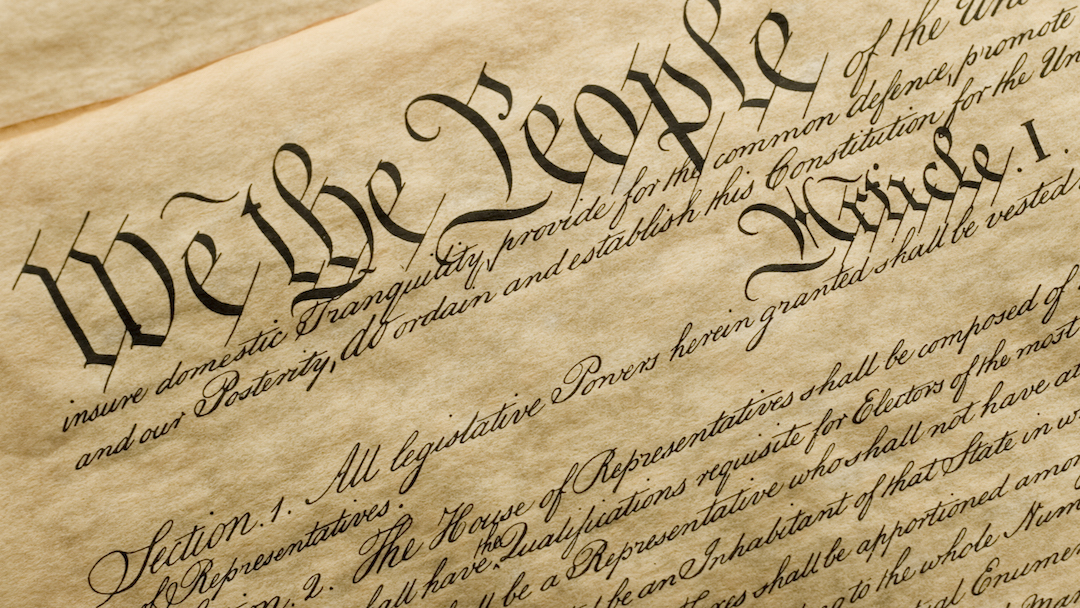 We the People of the Uni
insure domestic Tranquility, provide for the common defence, promote
and our Posterity, do ordain and establish this Constitution for the Un
Article. I.
Section. 1. All legislative Powers herein granted shall be vested
of Representatives.
2. The House of Representatives shall be composed of
all have the Qualifications requisite for Electors of the most
ll be a Representative who shall not have at
be an Inhabitant of that State in w
xes shall be apportioned among
to the whole Num
Enumer